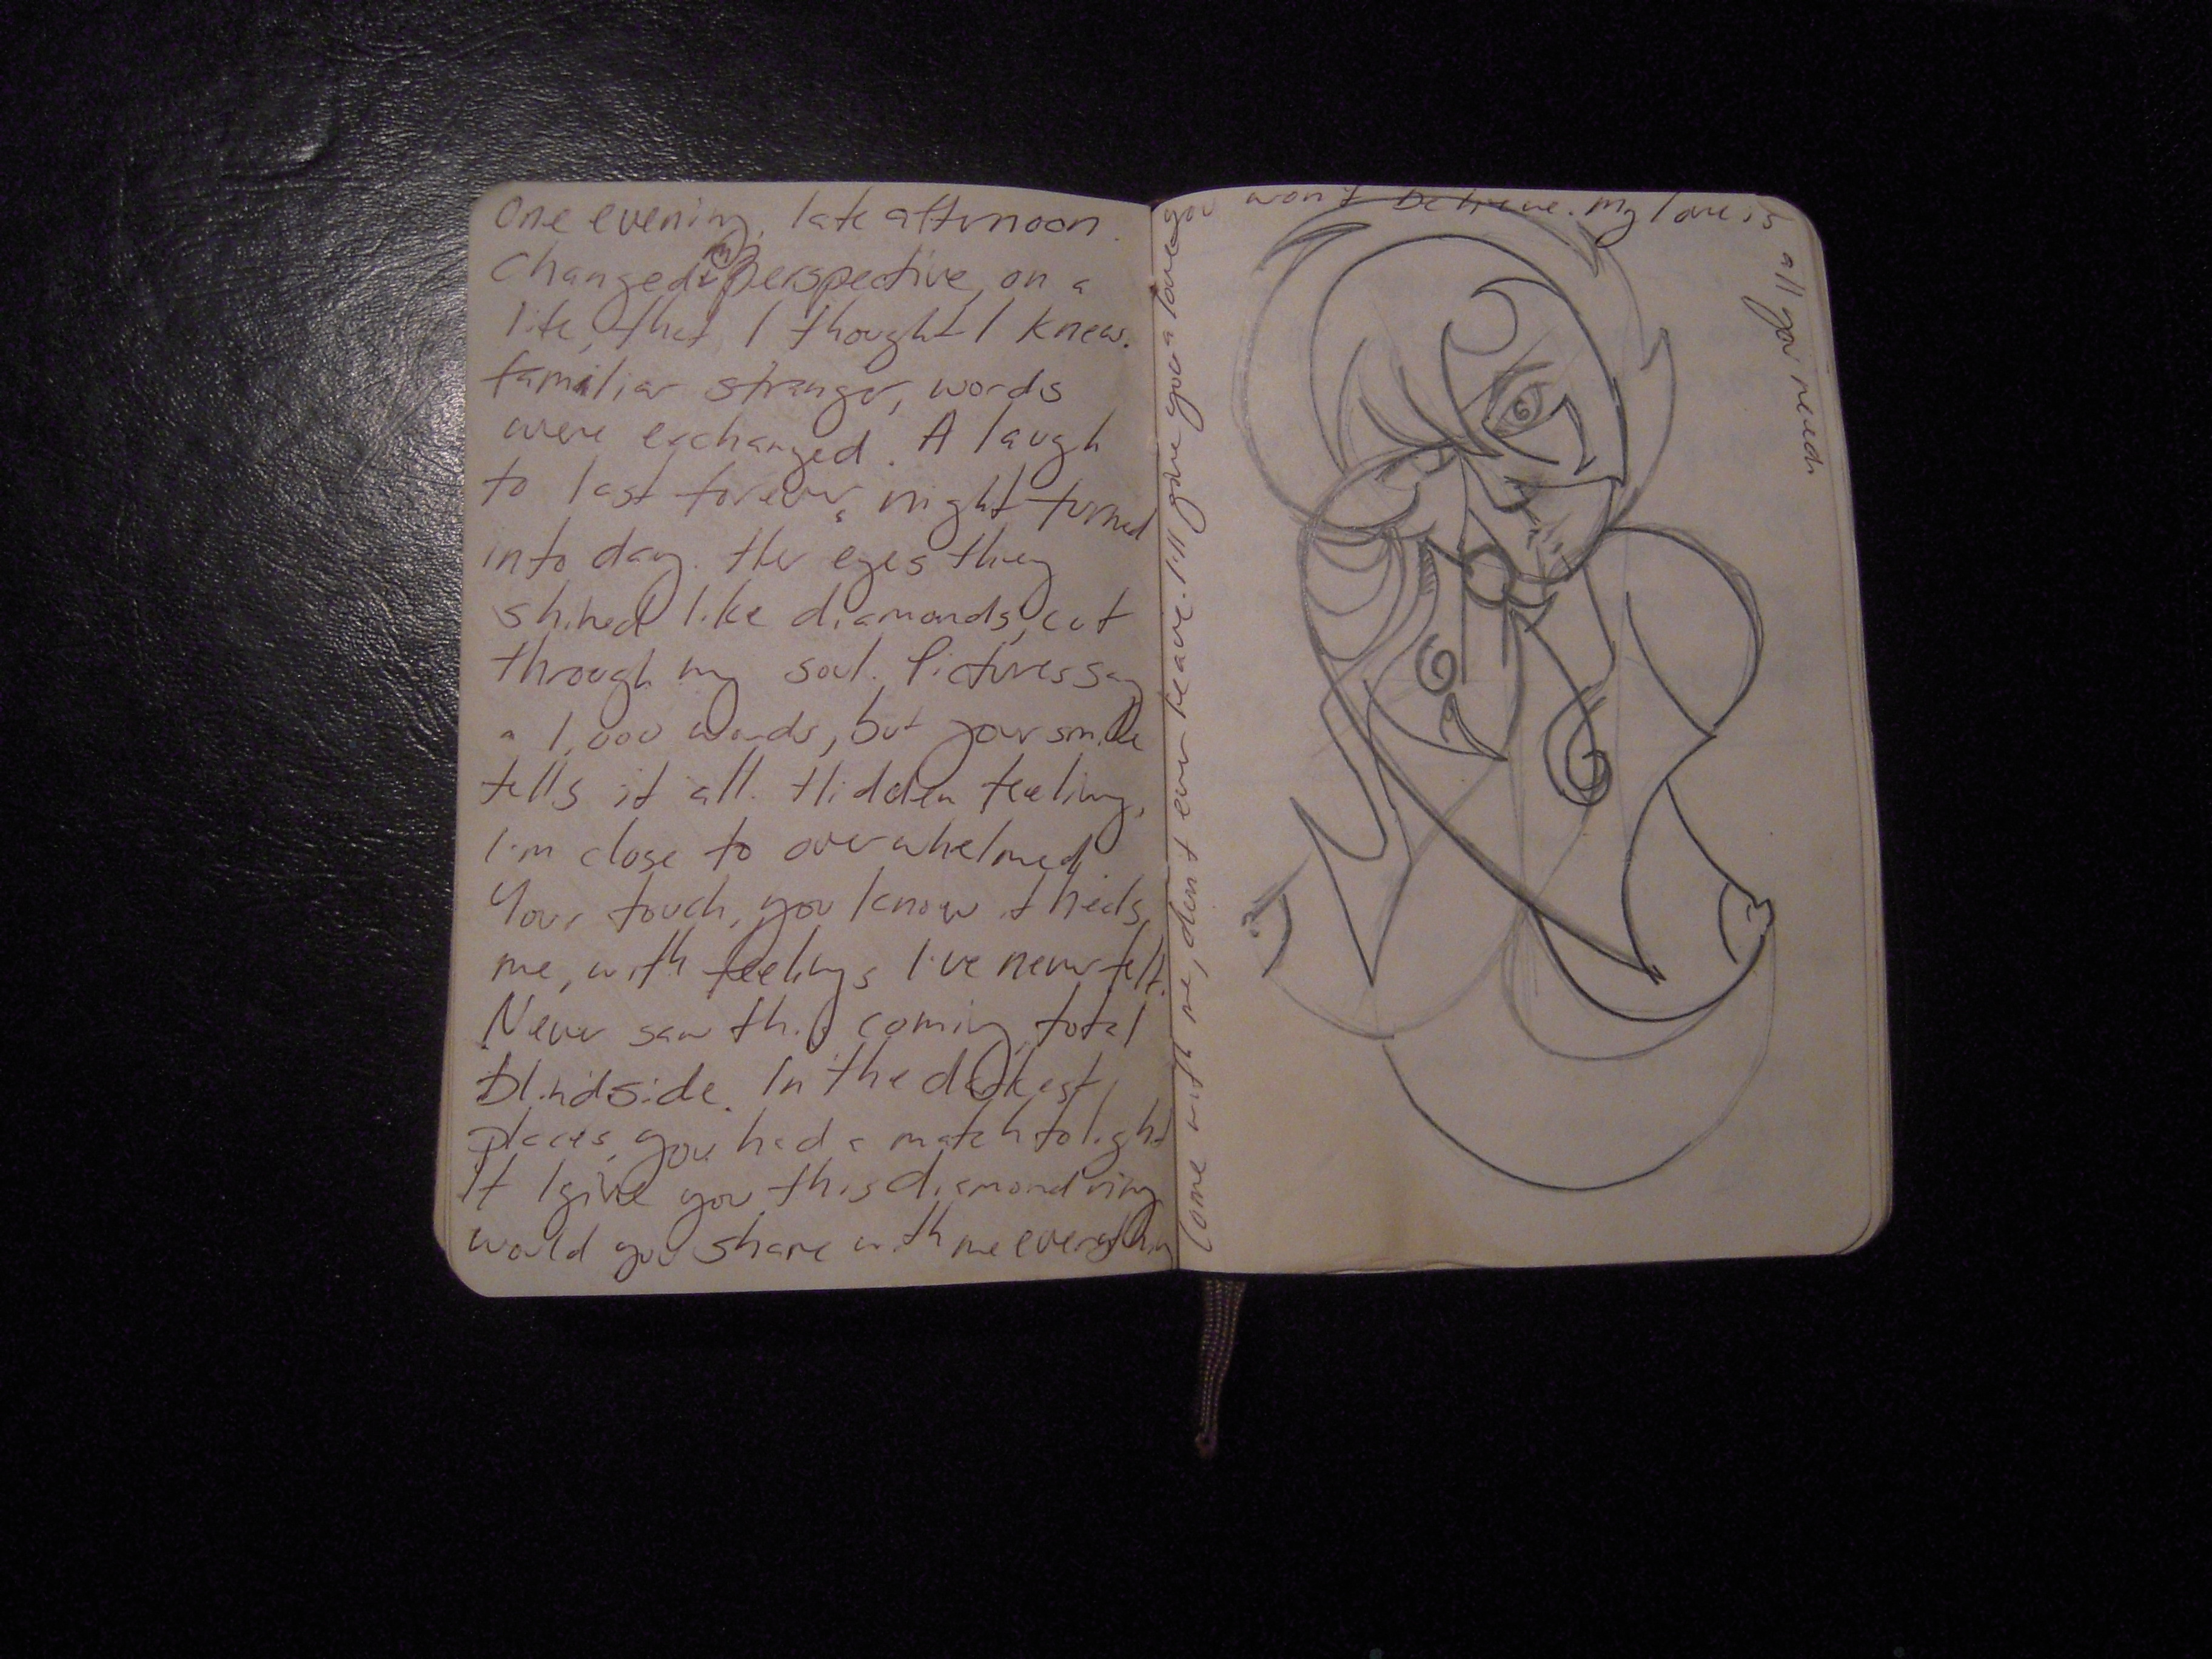 One evening, late afternoon.
Changed my perspective, on a
life, that I thought I knew.
familiar stranger, words
were exchanged. A laugh
to last forever, night turned
into day. Her eyes they
shined like diamonds, cut
through my soul. Pictures say
a 1,000 words, but your smile
tells it all. Hidden feeling,
I'm close to overwhelmed
Your touch, you know it heals,
me, with feelings I've never felt.
Never saw this coming, total
blindside. In the darkest,
places, you had a match to light
If I give you this diamond ring
would you share with me everything
Come with me, don't ever leave. I'll give you a love
you won't believe. my love is
all you need.